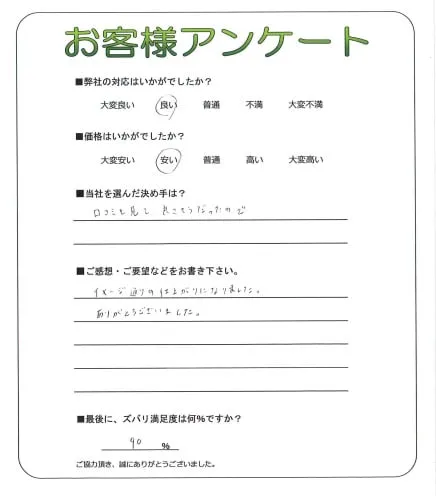 お客様アンケート
■弊社の対応はいかがでしたか?
大変良い 良い 普通 不満 大変不満
■価格はいかがでしたか?
大変安い 安い 普通 高い 大変高い
■当社を選んだ決め手は?
口コミを見て 良さそうだったので
■ご感想・ご要望などをお書き下さい。
イメージ通りの仕上がりになりました。
ありがとうございました。
■最後に、ズバリ満足度は何%ですか?
90 %
ご協力頂き、誠にありがとうございました。